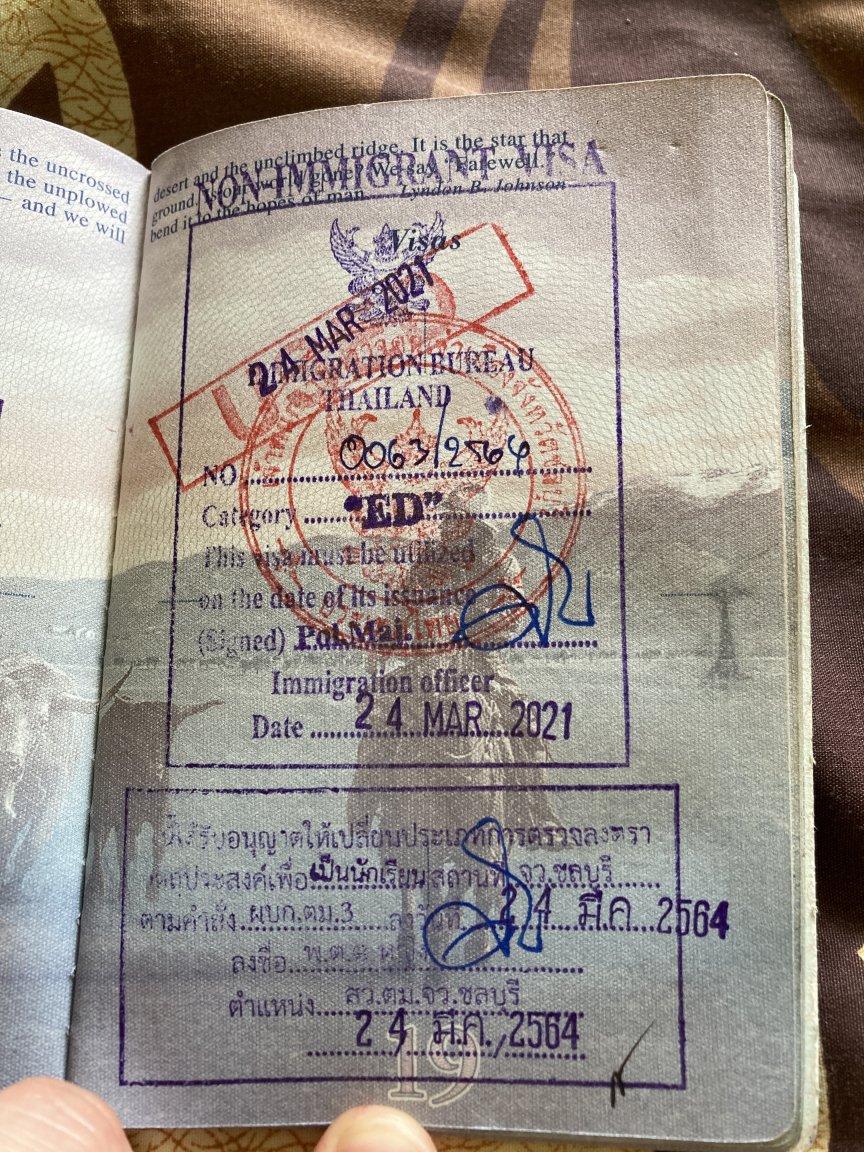 s the uncrossed
the unplowed
— and we will
desert and the unclimbed ridge. It is the star that
ground. We say, "Farewell."
bend it to the hopes of man. Lyndon B. Johnson
NON-IMMIGRANT VISA
Visas
24 MAR 2021
IMMIGRATION BUREAU
THAILAND
NO 0063/2564
Category "ED"
This visa must be utilized
on the date of its issuance
(Signed) Pol.Maj.
Immigration officer
Date 24 MAR 2021
ได้รับอนุญาตให้เปลี่ยนประเภทการตรวจลงตรา
วัตถุประสงค์เพื่อ เป็นนักเรียน สถานที่ จว.ชลบุรี
ตามคำสั่ง ผบก.ตม.3 ลงวันที่ 24 มี.ค. 2564
ลงชื่อ พ.ต.ต.
ตำแหน่ง สว.ตม.จว.ชลบุรี
24 มี.ค. 2564
19